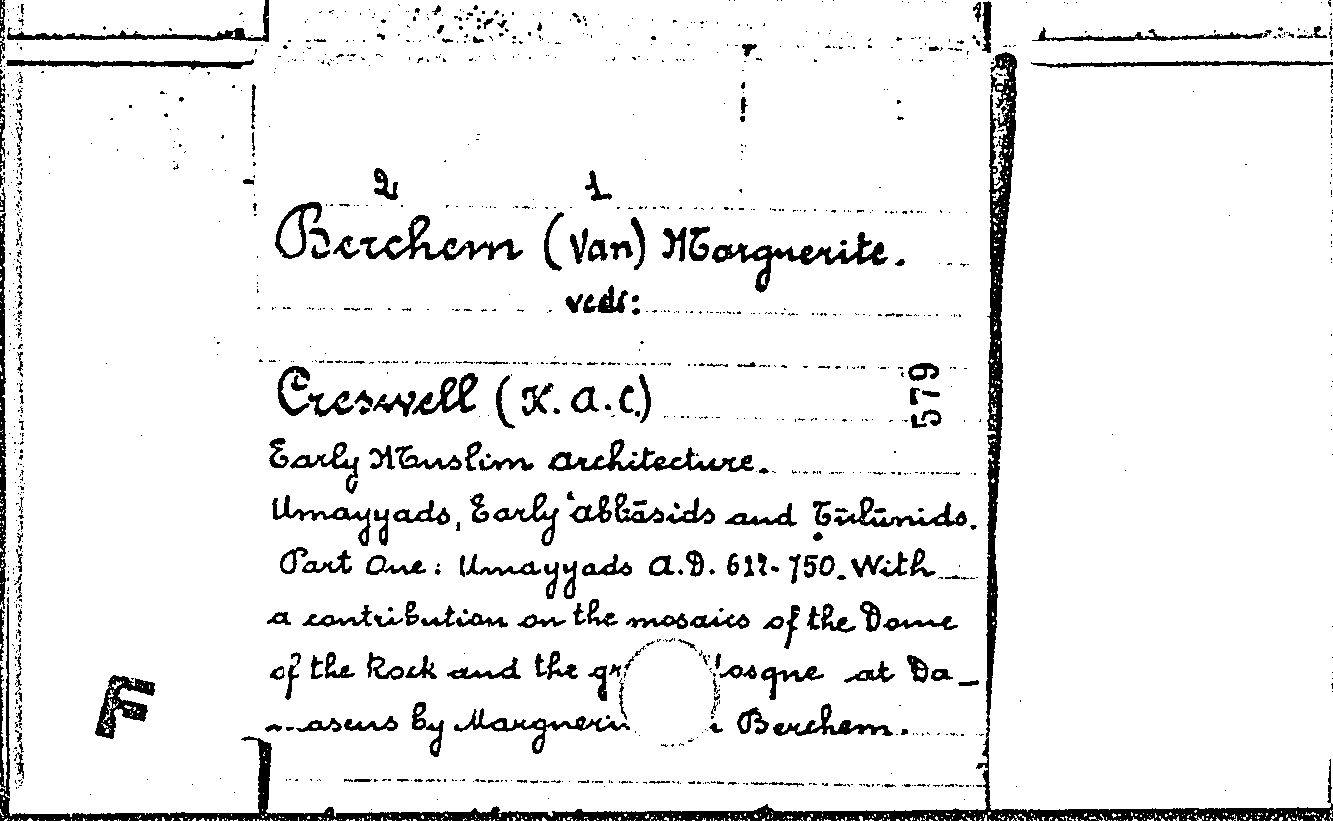 2 1
Berchem (Van) Marguerite.
vedi:
Creswell (K.A.C.)
579
Early Muslim Architecture.
Umayyads, Early 'Abbāsids and Ṭūlūnids.
Part One: Umayyads A.D. 622-750. With
a contribution on the mosaics of the Dome
of the Rock and the at Da_
by Berchem.
F